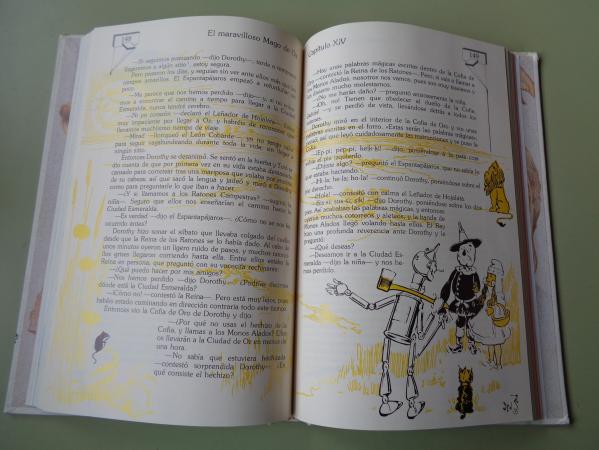 148
El maravilloso Mago de Oz
—Si seguimos caminando —dijo Dorothy—, tarde o temprano
llegaremos a algún sitio, estoy segura.
Pero pasaron los días, y seguían sin ver ante ellos más que los
campos amarillos. El Espantapájaros empezó a refunfuñar un
poco.
—Me parece que nos hemos perdido —dijo—, y como no vayamos
a encontrar el camino a tiempo para llegar a la Ciudad
Esmeralda, nunca tendré cerebro.
—Ni yo corazón —declaró el Leñador de Hojalata—. Estoy
muy impaciente por llegar a Oz y habréis de reconocer que
llevamos muchísimo tiempo de viaje.
—Mirad —lloriqueó el León Cobarde—, yo no tengo valor
para seguir vagabundeando durante toda la vida, sin llegar a
ningún sitio.
Entonces Dorothy se desanimó. Se sentó en la hierba y Totó se
dio cuenta de que por primera vez en su vida estaba demasiado
cansado para corretear tras una mariposa que volaba por encima
de su cabeza; así que sacó la lengua y jadeó y miró a Dorothy
como para preguntarle lo que iban a hacer.
—¿Y si llamamos a los Ratones Campestres? —sugirió la
niña—. Seguro que ellos nos enseñarían el camino hasta la
Ciudad Esmeralda.
—Es verdad —dijo el Espantapájaros—. ¿Cómo no se nos ha
ocurrido antes?
Dorothy hizo sonar el silbato que llevaba colgado del cuello
desde que la Reina de los Ratones se lo había dado. Al cabo de
unos minutos oyeron un ligero ruido de pasos, y muchos ratones
grises llegaron corriendo hasta ella. Entre ellos estaba la
Reina en persona, que preguntó con su vocecita rechinante:
—¿Qué puedo hacer por mis amigos?
—Nos hemos perdido —dijo Dorothy—. ¿Podríais decirnos
dónde está la Ciudad Esmeralda?
—¡Cómo no! —contestó la Reina—. Pero está muy lejos, pues
habéis estado caminando en dirección contraria todo este tiempo.
Entonces vio la Cofia de Oro de Dorothy y dijo:
—¿Por qué no usas el hechizo de la
Cofia, y llamas a los Monos Alados? Ellos
os llevarán a la Ciudad de Oz en menos de
una hora.
—No sabía que estuviera hechizada
—contestó sorprendida Dorothy—. ¿En
qué consiste el hechizo?
Capítulo XIV
149
—Hay unas palabras mágicas escritas dentro de la Cofia de
Oro —contestó la Reina de los Ratones—. Pero, si vais a llamar
a los Monos Alados, nosotros nos vamos, pues son muy traviesos y
les divierte mucho molestarnos.
—¿No me harán daño? —preguntó ansiosamente la niña.
—¡Oh, no! Tienen que obedecer al dueño de la Cofia.
¡Adiós! —y se perdió de vista, llevándose detrás a todos los
ratones.
Dorothy miró en el interior de la Cofia de Oro y vio unas
palabras escritas en el forro. «Estas serán las palabras mágicas»,
pensó, así que leyó cuidadosamente las instrucciones y se puso la
Cofia.
—¡Ep-pi, pep-pi, keik-ki! —dijo, poniéndose a la pata coja
sobre el pie izquierdo.
—¿Dijiste algo? —preguntó el Espantapájaros, que no sabía lo
que hacía.
—¡Hi-la, he-la, ho-la! —continuó Dorothy, poniéndose sobre el
pie derecho.
—¡Hola! —contestó con calma el Leñador de Hojalata.
—¡Siz-zi, suz-zi, sik! —dijo Dorothy, poniéndose sobre los dos
pies. Así acababan las palabras mágicas, y entonces
oyeron muchos cotorreos y aleteos, y la banda de
Monos Alados llegó volando hasta ellos. El Rey
hizo una profunda reverencia ante Dorothy y le
preguntó:
—¿Qué deseas?
—Deseamos ir a la Ciudad Esmeralda
—dijo la niña— y nos hemos
perdido.